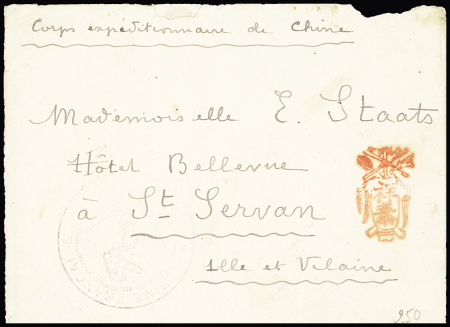 Corps expéditionnaire de Chine
Mademoiselle E. Staats
Hôtel Bellevue
à St Servan
Ille et Vilaine
2,50